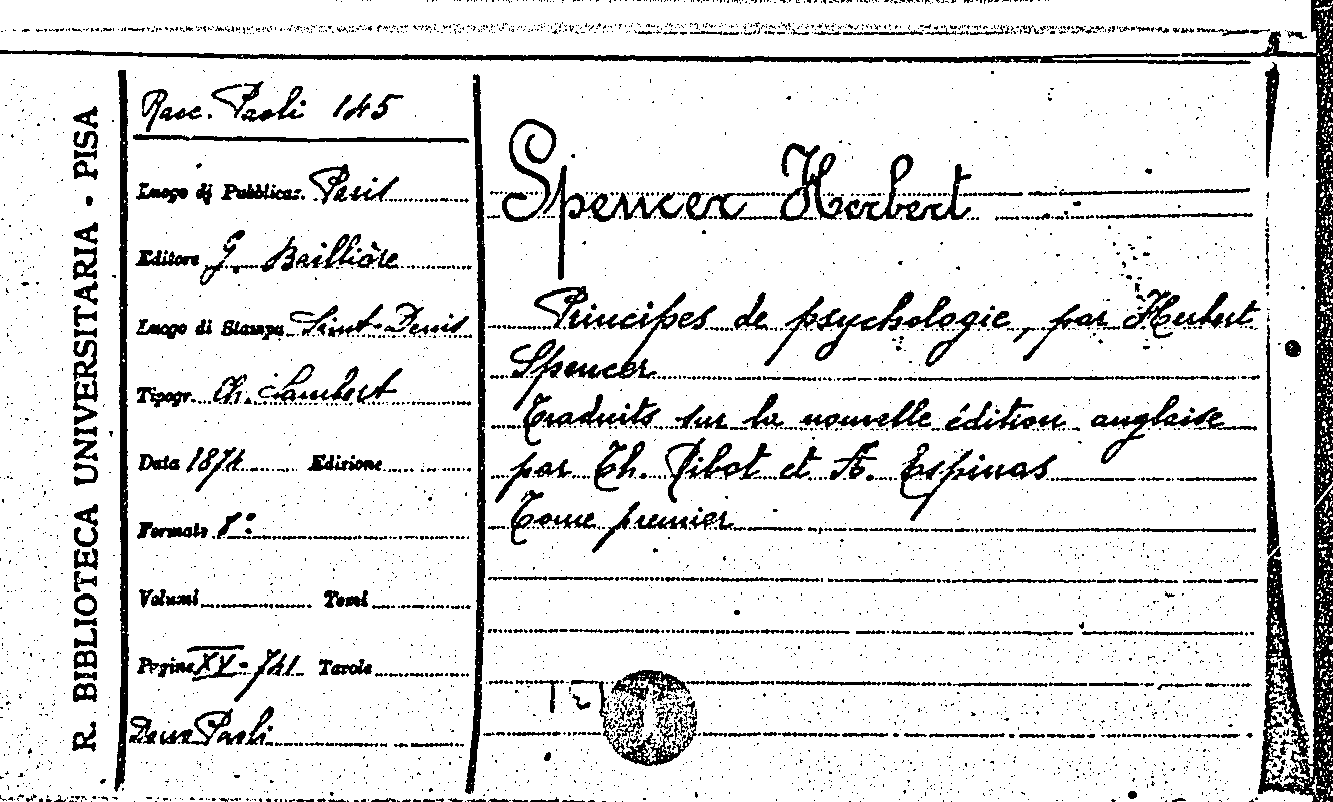 R. BIBLIOTECA UNIVERSITARIA - PISA
Racc. Paoli 145
Luogo di Pubblicaz. Paris
Editore G. Baillière
Luogo di Stampa Saint-Denis
Tipogr. Ch. Lambert
Data 1874 Edizione
Formato 8°
Volumi Tomi
Pagine XV-741 Tavole
Dono Paoli
Spencer Herbert
Principes de psychologie, par Herbert
Spencer
Traduits sur la nouvelle édition anglaise
par Th. Ribot et A. Espinas
Tome premier